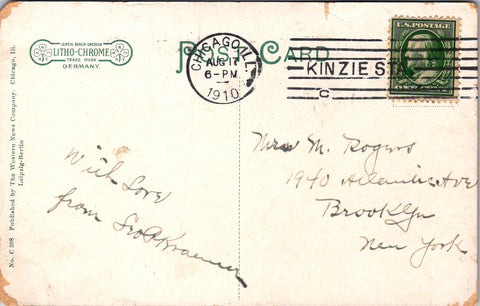 LEIPZIG BERLIN DRESDEN
LITHO-CHROME
TRADE MARK
GERMANY.
POST CARD
CHICAGO, ILL.
AUG 17
6-PM
1910
KINZIE ST
C
U.S. POSTAGE
No. C 398 Published by The Western News Company, Chicago, Ill.
Leipzig-Berlin
With Love
from Geo Kraemer
Mrs M. Rogers
1940 Atlantic Ave
Brooklyn
New York